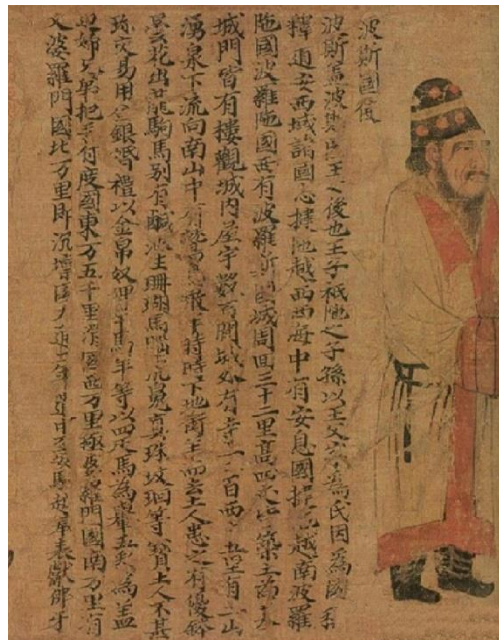 波斯國使
波斯蓋波斯王之後也王子祇陁之子孫以王父字為氏因為國
釋道安西域諸國志揵陁越西西海中有安息國揵陁越南波羅
陁國波羅陁國西有波羅斯國城周回三十二里高四丈築土為
城門皆有樓觀城內屋宇數百間城外有寺二三百西有土山
湧泉下流向南山中有鷲鳥噉羊時時下地銜羊而去土人患之有優鉢
曇花出龍駒馬別有鹹池生珊瑚馬腦虎魄真珠玫瑰等寶土人不甚
珍交易用金銀婚禮以金帛奴婢牛馬羊等以四疋馬為輦為蓋
迎婦兄弟把手付度國東万五千里滑國西万里極婆羅門國南万里有
又婆羅門國北万里即奉表獻佛牙